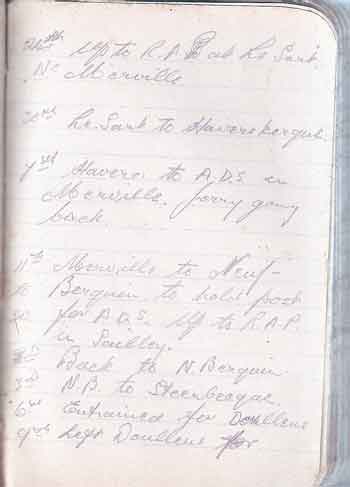 24th Up to R.A.P. at Le Sart.
Nr Merville
30th Le Sart to Haverskerque.
4th Havers. to A.D.S. in
Merville. Jerry going
back.
11th Merville to Neuf-
to Berquin to help post
for A.D.S. Up to R.A.P.
in Sailley.
Back to N. Berquin
3rd N.B. to Steenbecque.
6th Entrained for Doullens
9th Left Doullens for